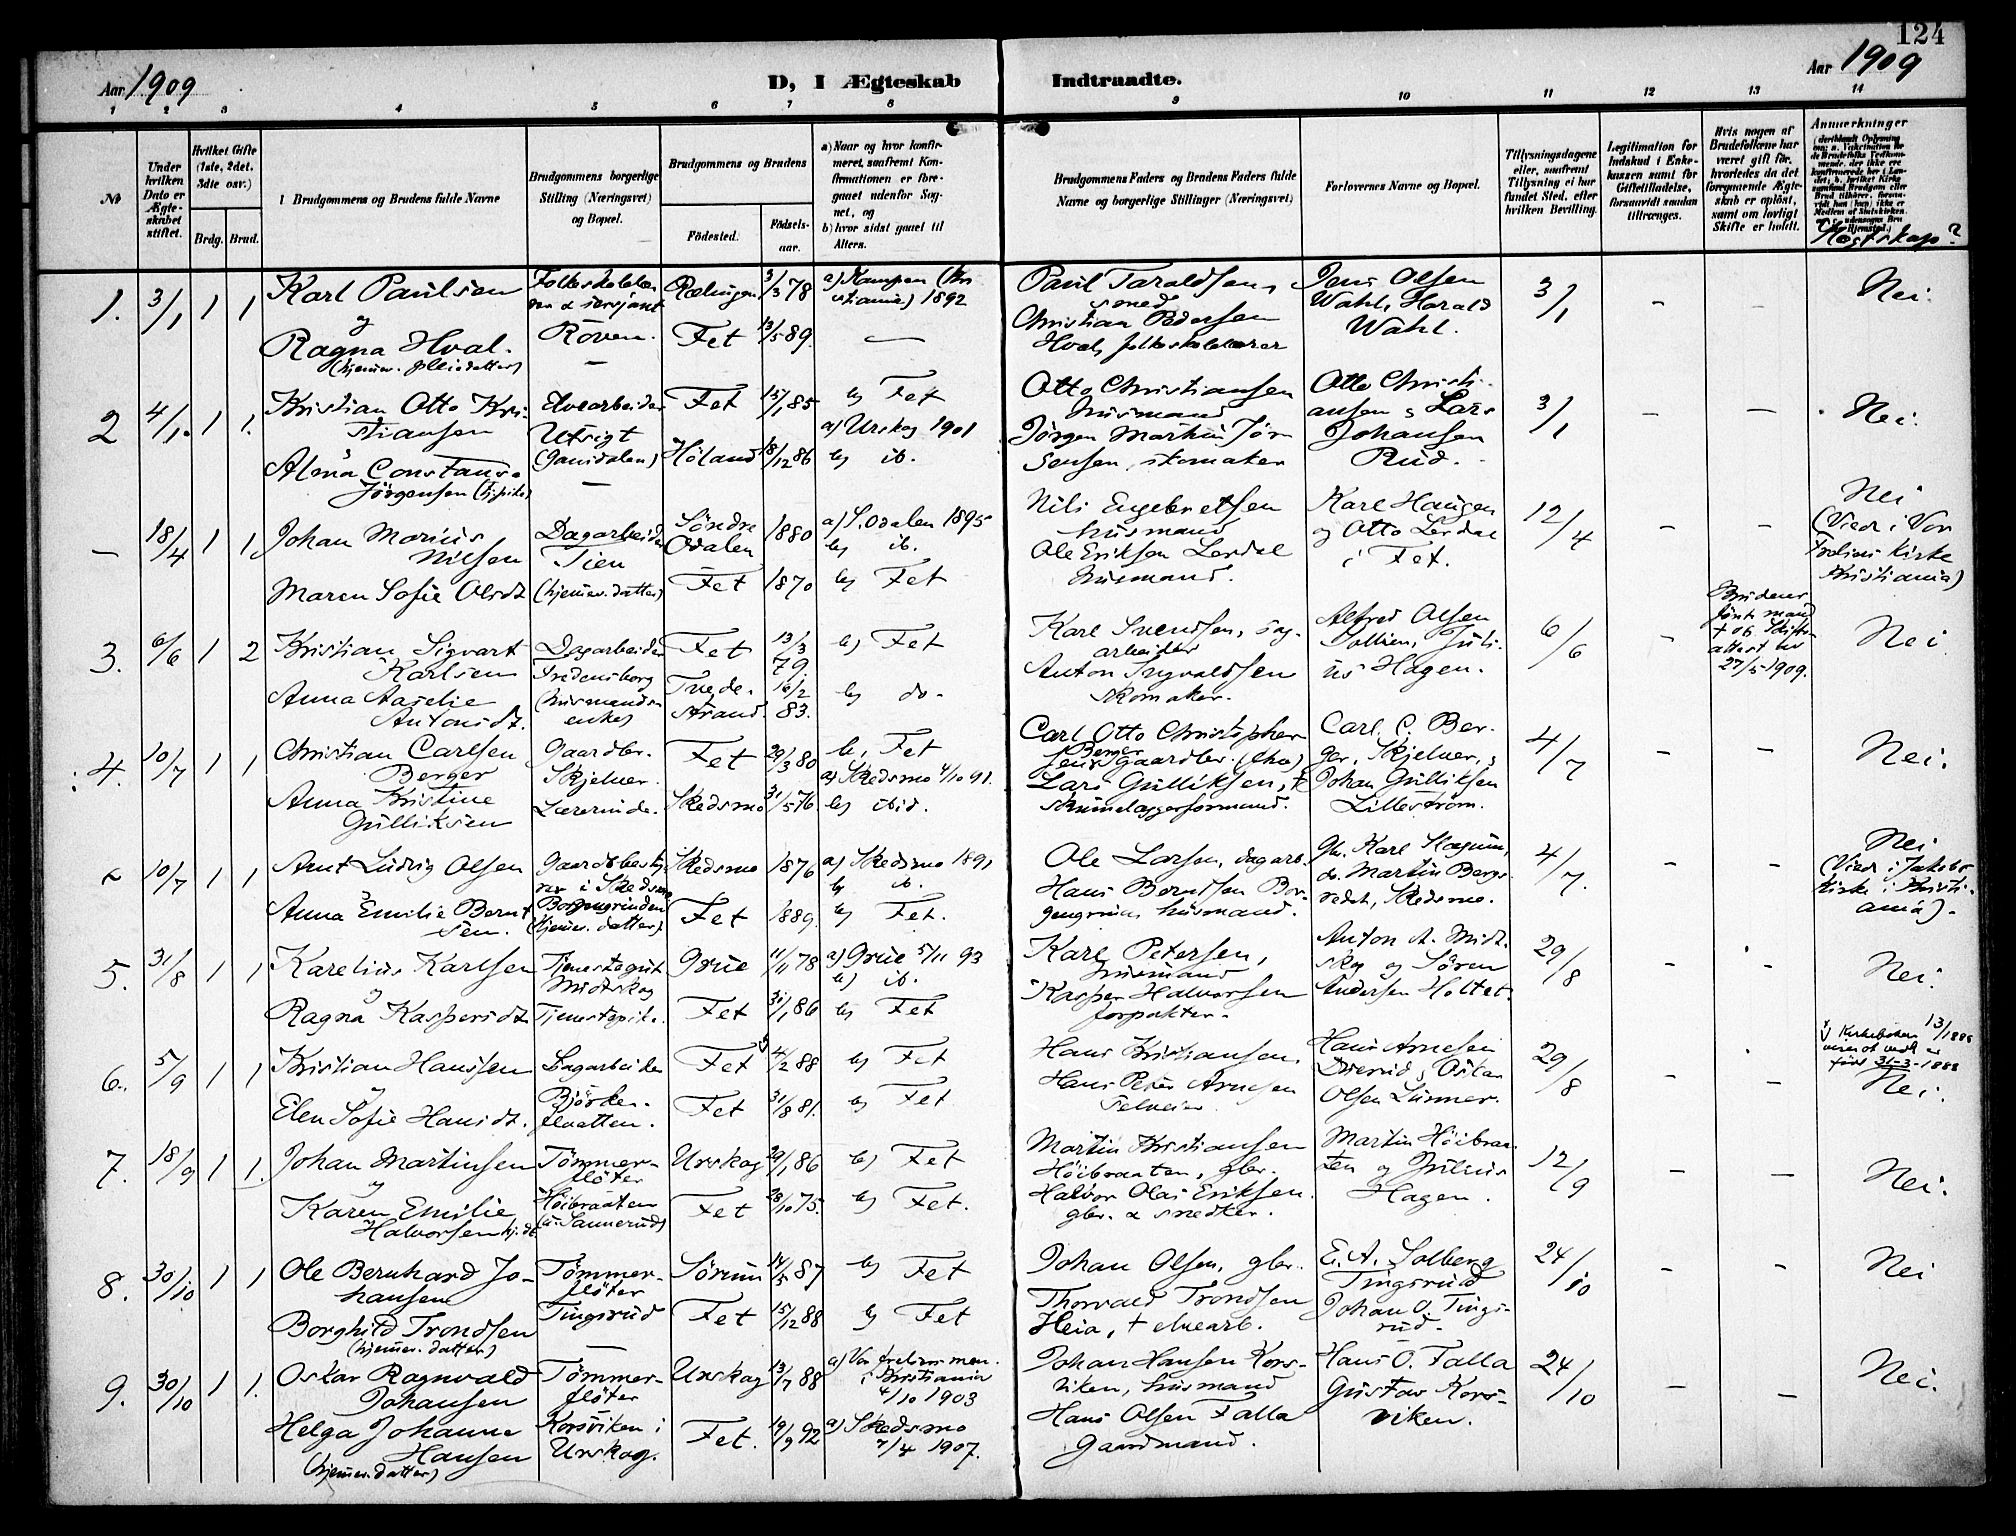 124
Aar 1909
D, I Ægteskab Indtraadte.
Aar 1909
1 2 3 4 5 6 7 8 9 10 11 12 13 14
№
Under hvilken Dato er Ægteskabet stiftet.
Hvilket Gifte (1ste, 2det, 3die osv.)
Brdg. Brud.
Brudgommens og Brudens fulde Navne
Brudgommens borgerlige Stilling (Næringsvei) og Bopæl.
Brudgommens og Brudens
Fødested.
Fødselsaar.
a) Naar og hvor konfirmeret, saafremt Konfirmationen er foregaaet udenfor Sognet, og
b) hvor sidst gaaet til Alters.
Brudgommens Faders og Brudens Faders fulde Navne og borgerlige Stillinger (Næringsvei)
Forlovernes Navne og Bopæl.
Tillysningsdagene eller, saafremt Tillysning ei har fundet Sted, efter hvilken Bevilling.
Legitimation for Indskud i Enkekassen samt for Giftetilladelse, forsaavidt saadan tiltrænges.
Hvis nogen af Brudefolkene har været gift før, hvorledes da det foregaaende Ægteskab er opløst, samt om lovligt Skifte er holdt.
Anmærkninger
Slægtskap?
1. 3/1 1 1
Karl Paulsen
og
Ragna Hval.
(hjemmev. pleiedatter)
Roven.
Rælingen 3/3 78
Fet 13/5 89
a) Kampen (Kristiania) 1892
Paul Taraldsen, smed
Christian Pedersen
Hval, folkeskolelærer
Jens Olsen
Wahl, Harald
Wahl.
3/1
Nei.
2 4/1. 1 1.
Kristian Otto Kristiansen
Alma Constanse
Jörgensen
Elvearbeider
Utsigt
(Gansdalen)
Fet 15/1 85
Höland 18/12 86
b) Fet
a) Urskog 1901
b) ib.
Otto Christiansen
husmand
Jörgen Martin Jörgensen, skomaker
Otto Christiansen & Lars
Johansen
Rud.
3/1
Nei.
18/4 1 1
Johan Marius
Nilsen
Maren Sofie Olsdt
Dagarbeider
Tien
(hjemmev. datter)
Söndre
Odalen 1880
Fet 1870
a) S. Odalen 1895
b) ib.
b) Fet
Nils Engebretsen
husmand
Ole Eriksen Lerdal
husmand.
Karl Haugen
og Otto Lerdal
i Fet.
12/4
Nei
(Viet i Vor
Frelsers Kirke
Kristiania)
3. 6/6 1 2
Kristian Sigvart
Karlsen
Anna Aaselie
Antonsdt.
Dagarbeider
Fredensborg
(husmands
enke)
Fet 13/3 79.
Tvedestrand. 16/2 83.
b) Fet
b) do.
Karl Svendsen, sagarbeider
Anton Ingvaldsen
skomaker.
Alfred Olsen
Sollien, Julius Hagen.
6/6
Brudens
första mand
† og skifteattest av
27/5 1909.
Nei
4. 10/7 1 1
Christian Carlsen
Berger
Anna Kristine
Gulliksen
Gaardbr.
Skjelver.
Lærerinde.
Fet 29/3 80
Skedsmo 31/5 76
b. Fet
a) Skedsmo 4/10 91.
b) ibid.
Carl Otto Christophersen Berger gaardbr.
Lars Gulliksen, †
skumelaggerformand.
Carl C. Berger, Skjelver, &
Johan Gulliksen
Lilleström.
4/7
Nei.
10/7 1 1
Arnt Ludvig Olsen
Anna Emilie Berntsen.
Gaardsbestyrer i Skedsmo
Borgengrinden
(hjemmev. datter)
Skedsmo 1876
Fet 1889.
a) Skedsmo 1891
b) ib.
b) Fet.
Ole Larsen, dagarb.
Hans Berntsen Borgengrind husmand.
Gbr. Karl Hagund,
do. Martin Bergs
redst, Skedsmo.
4/7.
Nei
(Viet i Jakobs
kirke i Kristiania).
5. 31/8 1 1
Karelius Karlsen
og
Ragna Kaspersdt
Tjenestegut
Midtskog
Tjenestepike.
Grue 11/11 78
Fet 31/1 86
a) Grue 5/11 93
b) ib.
b) Fet
Karl Petersen,
husmand
Kasper Halvorsen
forpakter.
Anton A. Midtskog og Sören
Andersen Holtet.
29/8
Nei.
6. 5/9 1 1
Kristian Hansen
og
Elen Sofie Hansdt.
Sagarbeider
Björkeflaatten.
Fet 4/2 88
Fet 31/8 81.
b) Fet
b) Fet
Hans Kristiansen.
Hans Peter Arnesen
Selveier
Hans Arnesen
Dverud, Oskar
Olsen Lunner.
29/8
född 31-3-1888
Nei.
7. 18/9 1 1.
Johan Martinsen
og
Karen Emilie
Halvorsen hj. dt.
Tömmerflöter
Höibraaten
(u. Sannerud)
Urskog 29/1 86
Fet 28/10 75.
b) Fet
b) Fet.
Martin Kristiansen
Höibraaten, gbr.
Halvor Olai Eriksen.
gbr. & snedker.
Martin Höibraaten og Julius
Hagen.
12/9
Nei.
8. 30/10 1 1
Ole Bernhard Johansen
Borghild Trondsen
(hjemmev. datter)
Tömmerflöter
Tingsrud
Sörum 14/5 87
Fet 15/12 88
b) Fet
b) Fet
Johan Olsen, gbr.
Thorvald Trondsen
Heia, † elvearb.
E. A. Solberg
Tingsrud
Johan O. Tingsrud.
24/10
Nei
9. 30/10 1 1.
Oskar Ragnvald
Johansen
Helga Johanne
Hansen
(hjemmev. datter)
Tömmerflöter
Korsviken i
Urskog.
Urskog 13/7 88
Fet. 19/9 92
a) Vor Frelsers men.
i Kristiania
4/10 1903
a) Skedsmo
7/4 1907.
Johan Hansen Korsviken, husmand
Hans Olsen Falla
gaardmand.
Hans O. Falla
Gustav Korsviken.
24/10
Nei.